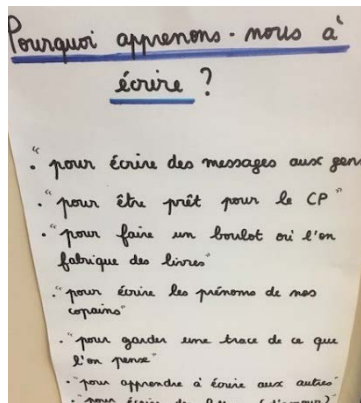 Pourquoi apprenons-nous à
écrire ?
. "pour écrire des messages aux gens
. "pour être prêt pour le CP"
. "pour faire un boulot où l'on
fabrique des livres"
. "pour écrire les prénoms de nos
copains"
. "pour garder une trace de ce que
l'on pense"
. "pour apprendre à écrire aux autres"
. "pour écrire